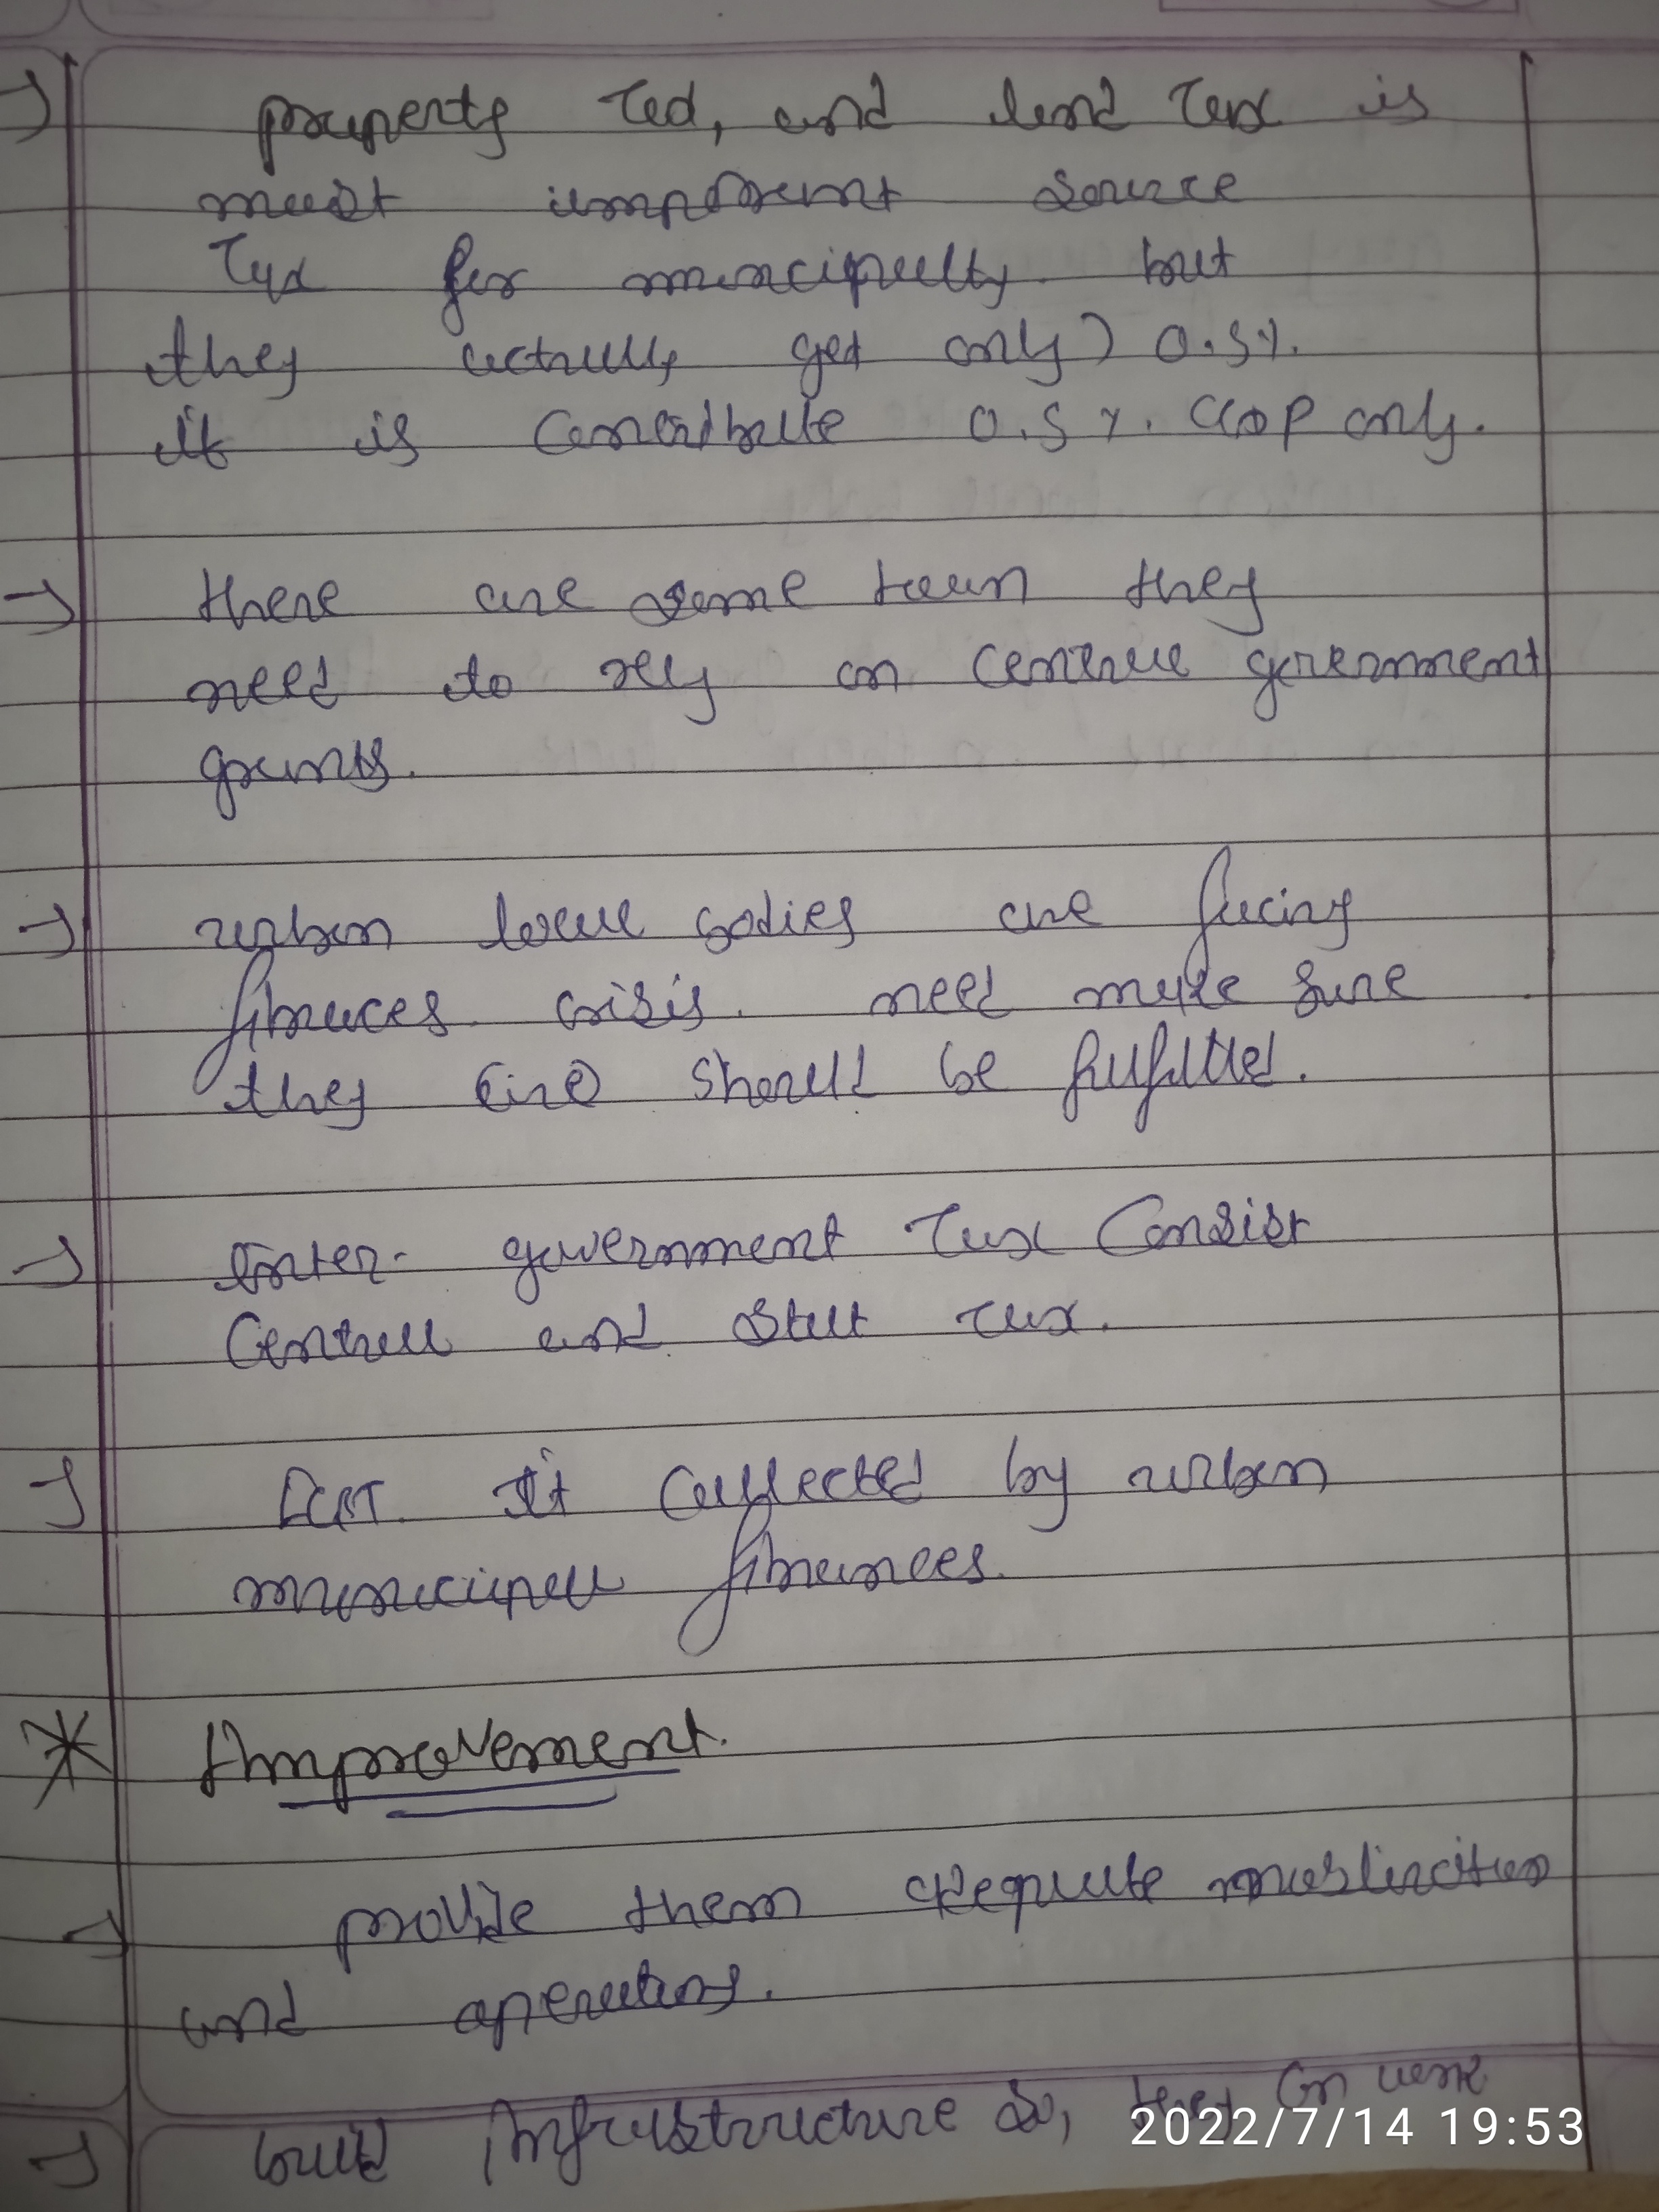 → property Tax, and land Tax is
most important source
Tax for muncipality but
they actually get only 0.5%.
it is Contribute 0.5%. GDP only.
→ there are some town they
need to rely on Central government
grants.
→ urban local bodies are facing
finances crisis. need make sure
they should be fulfilled.
→ Inter- government Tax Consist
Central and Stat Tax.
→ It Collected by urban
municipal finances.
* Improvement.
→ provide them adequate
and operations.
→ build Infrastructure So, they Can work
2022/7/14 19:53